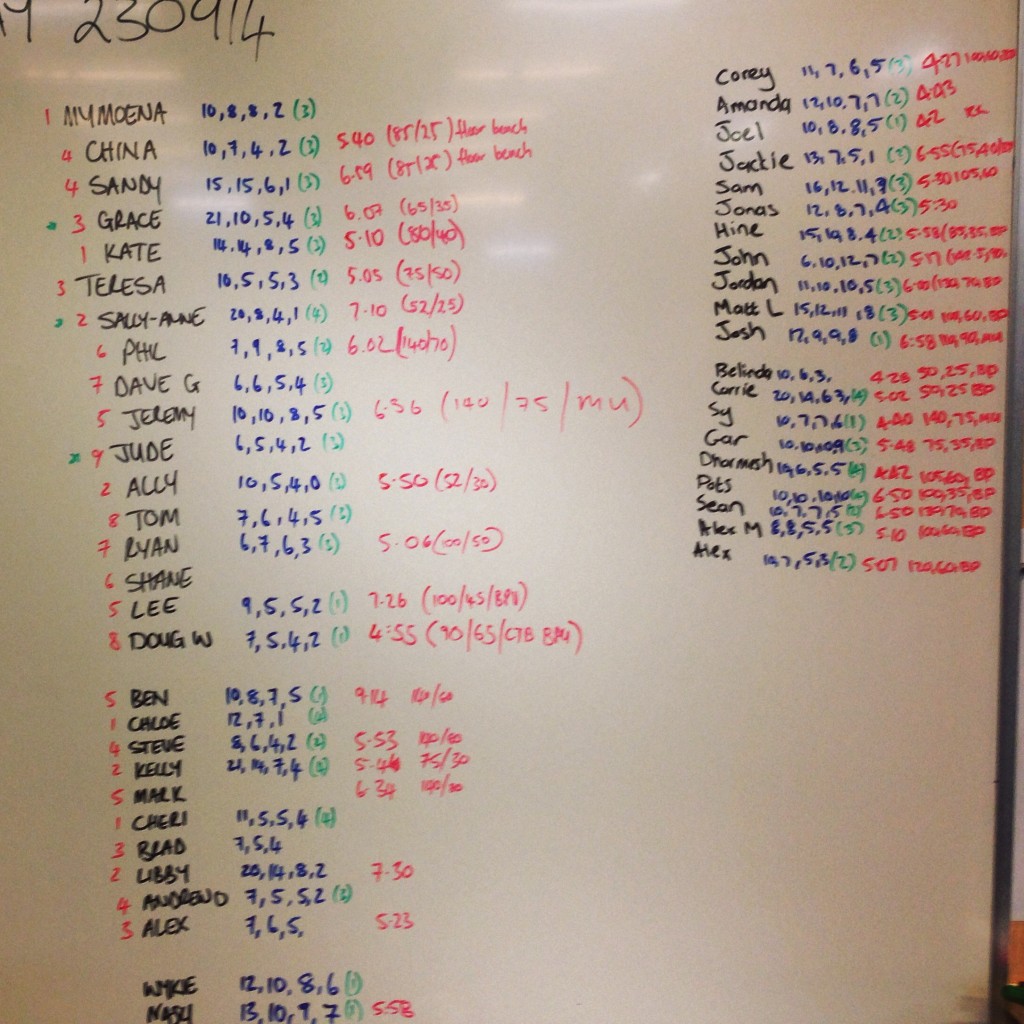 230914
1 MYMOENA 10,8,8,2 (3)
4 CHINA 10,7,4,2 (3) 5.40 (85/25) floor bench
4 SANDY 15,15,6,1 (3) 6.59 (85/25) floor bench
3 GRACE 21,10,5,4 (3) 6.07 (65/35)
1 KATE 14.14,8,5 (3) 5.10 (80/40)
3 TERESA 10,5,5,3 5.05 (75/50)
2 SALLY-ANNE 20,8,4,1 (4) 7.10 (52/25)
6 PHIL 7,9,8,5 (2) 6.02 (140/70)
7 DAVE G 6,6,5,4 (3)
5 JEREMY 10,10,8,5 (3) 6.36 (140/75/MU)
9 JUDE 6,5,4,2 (3)
2 ALLY 10,5,4,0 (3) 5.50 (52/30)
8 TOM 7,6,4,5 (3)
7 RYAN 6,7,6,3 (3) 5.06 (100/50)
6 SHANE
5 LEE 9,5,5,2 (1) 7.26 (100/45/BPU)
8 DOUG W 7,5,4,2 (1) 4:55 (90/65/CTB BPU)
5 BEN 10,8,7,5 (1) 9.14 140/60
1 CHLOE 12,7,1
4 STEVE 8,6,4,2 (2) 5.53
2 KELLY 21,14,7,4 75/30
5 MARK 6.34
1 CHERI 11,5,5,4 (4)
3 BRAD 7,5,4
2 LIBBY 20,14,8,2 7.30
4 ANDREW D 7,5,5,2 (3)
3 ALEX 7,6,5, 5.23
WYKIE 12,10,8,6 (1)
NASH 13,10,9,7 (1) 5.58
Corey 11,7,6,5 (3) 4.27
Amanda 12,10.7,7 (2) 4.43
Joel 10,8.8,5 (1) 4.2
Jackie 13,7,5,1 6.55
Sam 16,12.11,7 (3) 5.30
Jonas 12,8,7,4 (3) 5:30
Hine 5.58
John 6,10,12,7 (2) 5.17
Jordan 11,10,10,5 (3) 6:00
Matt L 15,12,11,8 (3)
Josh 12,9,9,8 (1) 6:58
Belinda 10,6,3, 4.28 50,25,BP
Carrie 20,14,6,3 5.02 50,25 BP
Sy 10,7,7,6 (1) 4.40 140,75,MU
Gar 10.10,10,9 (3) 5.48 75,35,BP
Dharmesh 4.42 105,60, BP
Pots 10,10,10,10 6.50 100,35,BP
Sean 10,7,7,5 6.50
Alex M 8,8,5,5 (3) 5.10 100,60,BP
Alex 5.07 120,60,BP